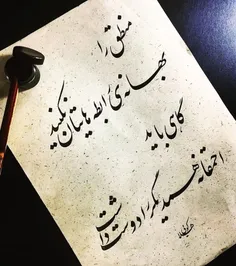 منطق را
بهانه‌ی رابطه‌هایتان نکنید
گاهی باید
احمقانه همدیگر را دوست داشت